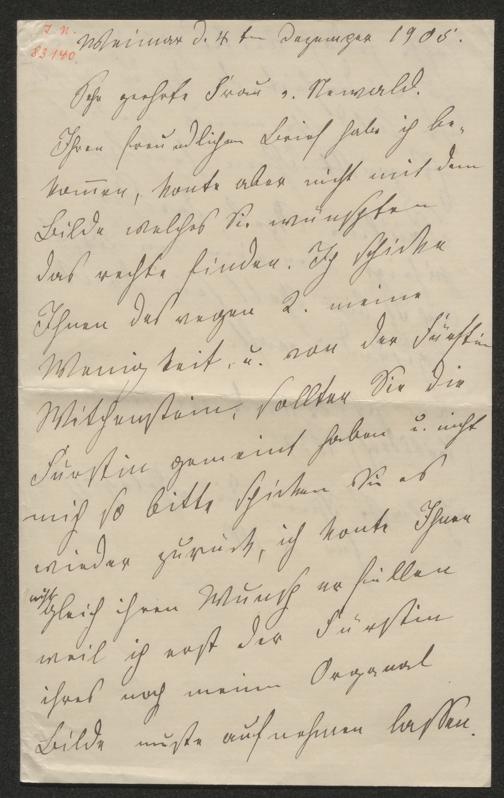 I. N.
83140
Weimar d. 4 tn Dezember 1905.
Sehr geehrte Frau v. Newald.
Ihren freundlichen Brief habe ich be-
kom̄en, konte aber nicht mit dem
Bilde welches Sie wünschten
das rechte finden. Ich schicke
Ihnen des wegen 2. meine
Wenigkeit, u. von der Fürstin
Witchenstein, sollten Sie die
Fürstin gemeint haben u. nicht
mich so bitte schicken Sie es
wieder zurück, ich konte Ihnen
nicht gleich ihren Wunsch erfüllen
weil ich erst der Fürstin
ihres nach meinem Organal
Bilde muste aufnehmen lassen.